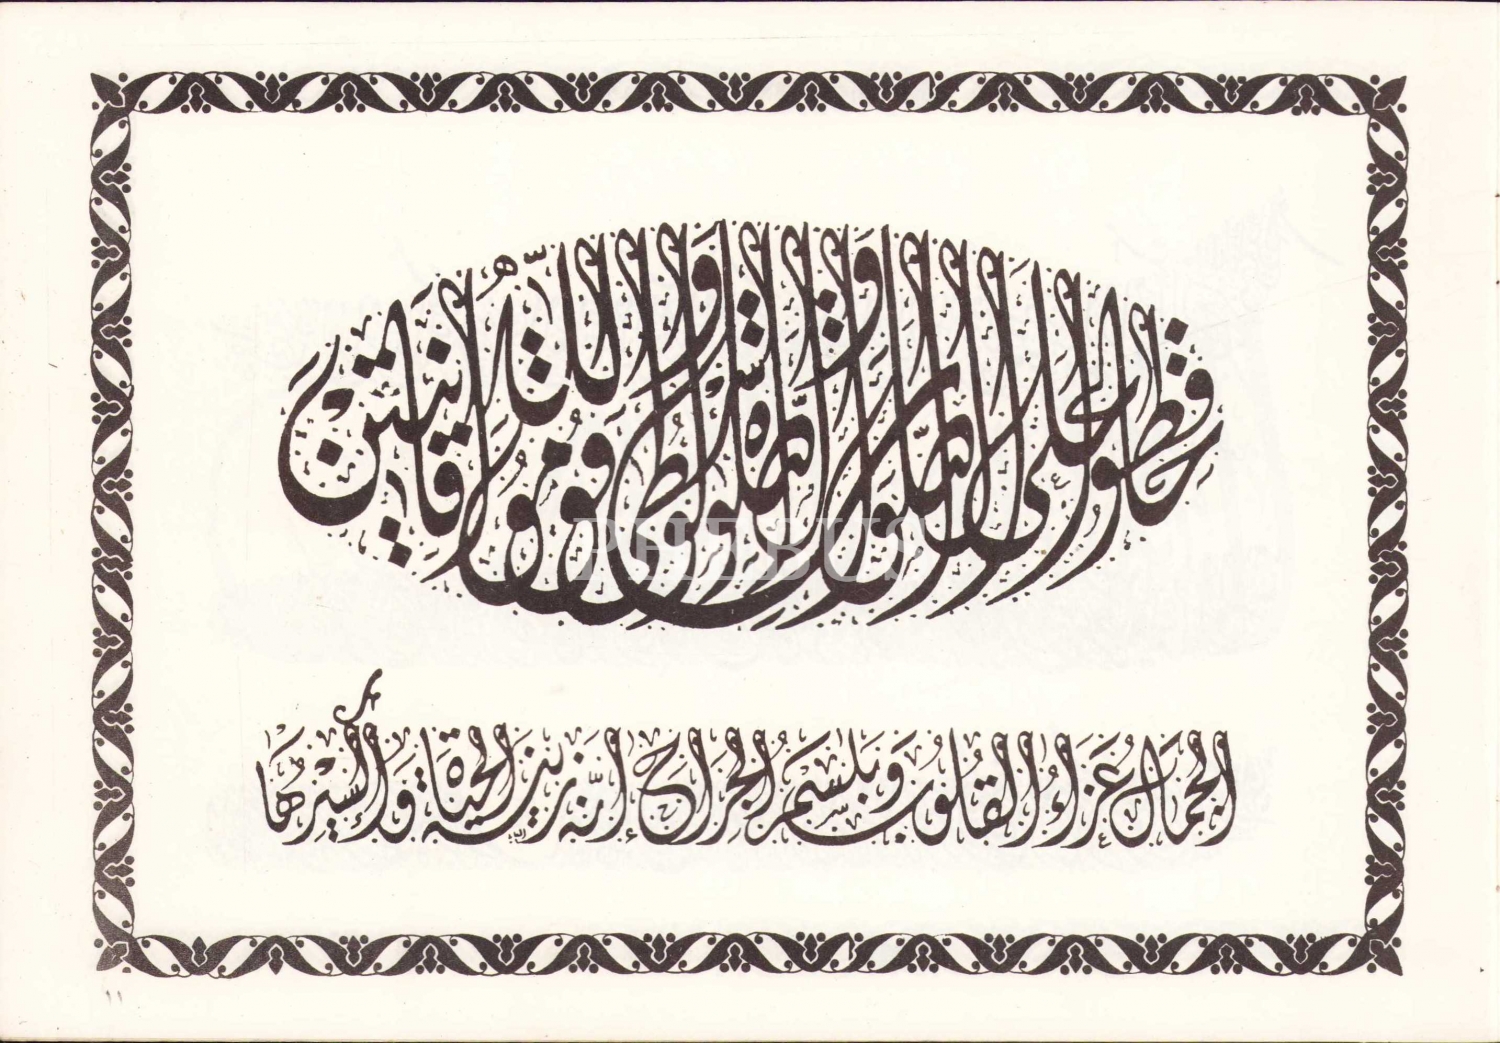 حافظوا على الصلوات والصلاة الوسطى وقوموا لله قانتين
PHEBUS
الجمال عزاء القلوب وبلسم الجراح إنه زينة الحياة وإكسيرها
١١